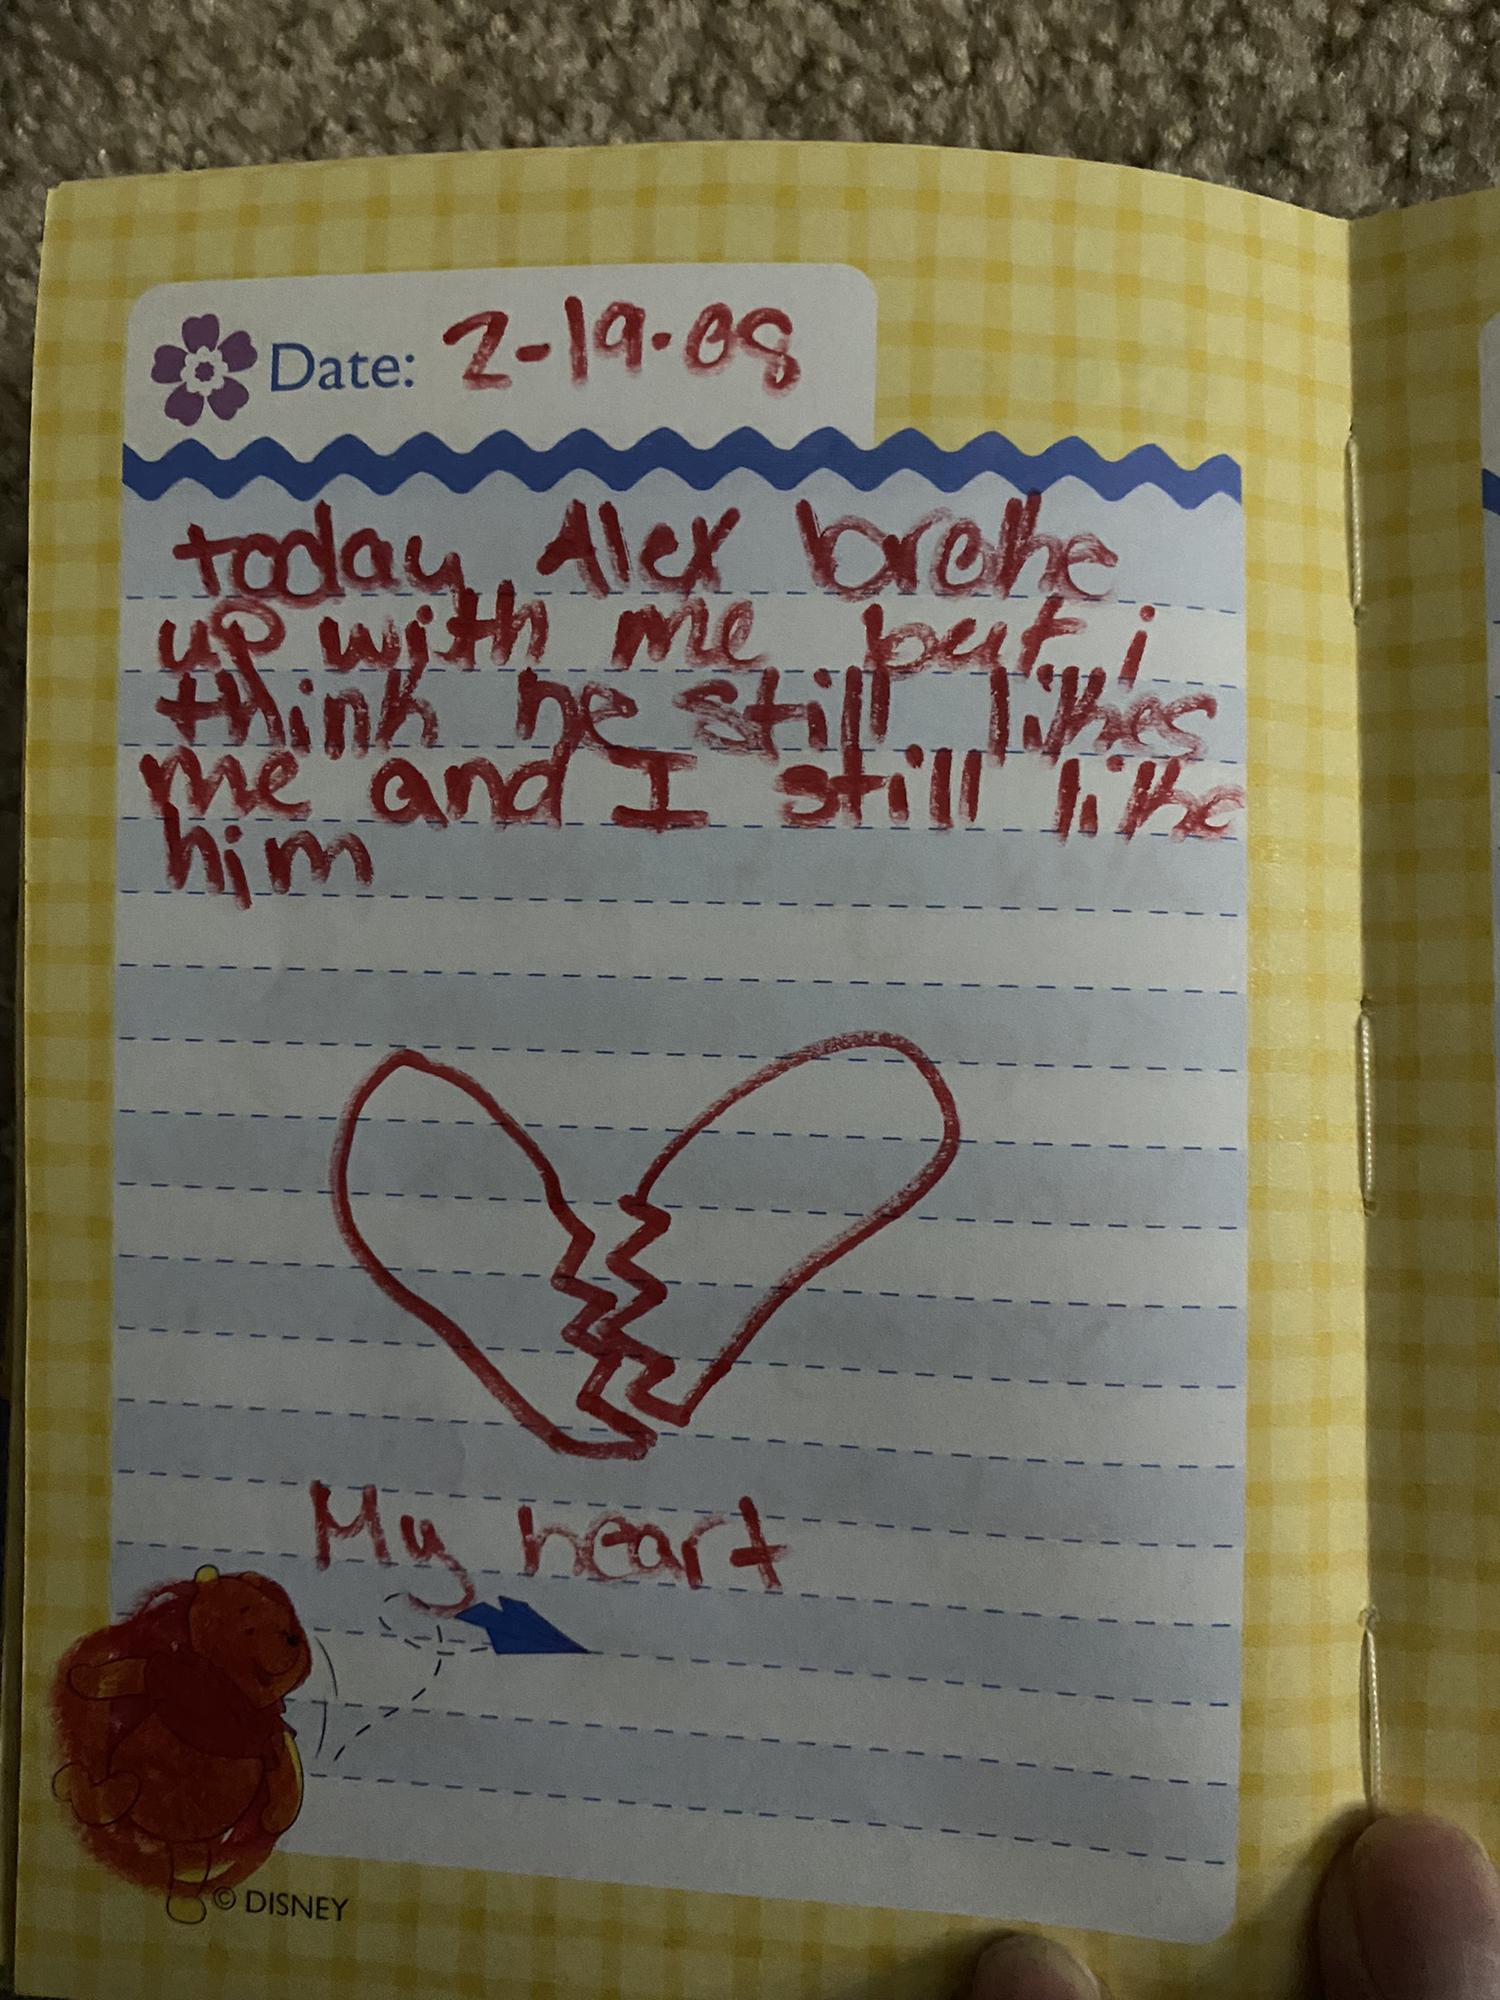 Date: 2-19-08
today, Alex broke
up with me but i
think he still likes
me and I still like
him
My heart
© DISNEY